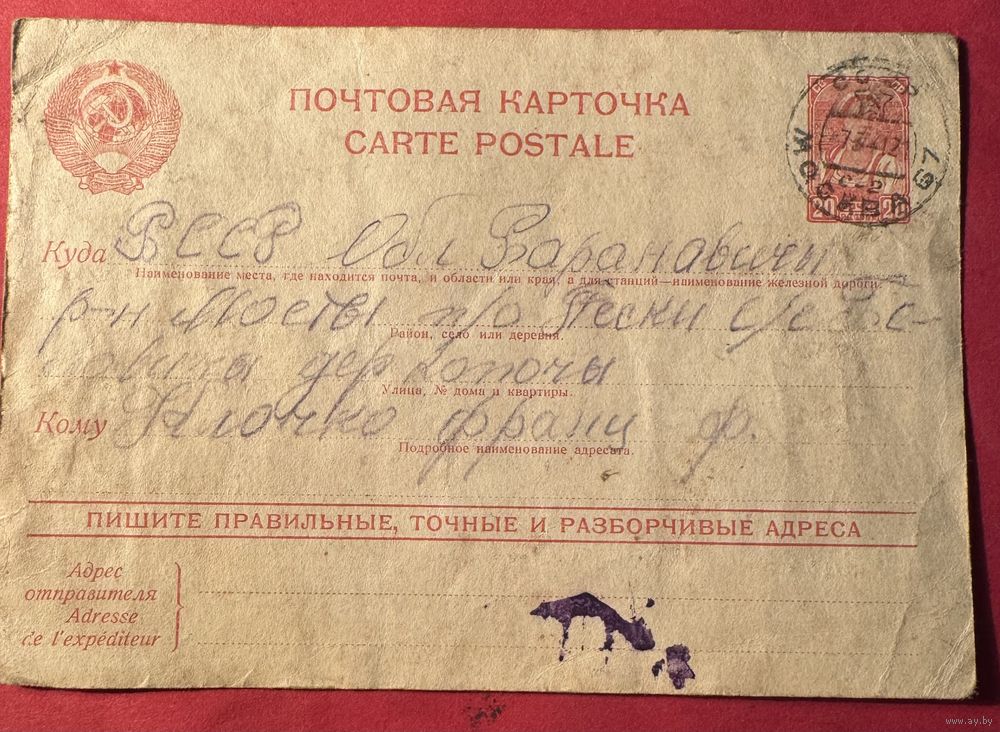 ПОЧТОВАЯ КАРТОЧКА
CARTE POSTALE
СССР
МОСКВА 67
20 20
Куда БССР Обл Баранавичы
Наименование места, где находится почта, и области или края, а для станций—наименование железной дороги.
р-н Мосты п/о Пески
Район, село или деревня.
дер Копачы
Улица, № дома и квартиры.
Кому Клочко Франц Ф.
Подробное наименование адресата.
ПИШИТЕ ПРАВИЛЬНЫЕ, ТОЧНЫЕ И РАЗБОРЧИВЫЕ АДРЕСА
Адрес
отправителя
Adresse
de l'expéditeur
www.ay.by